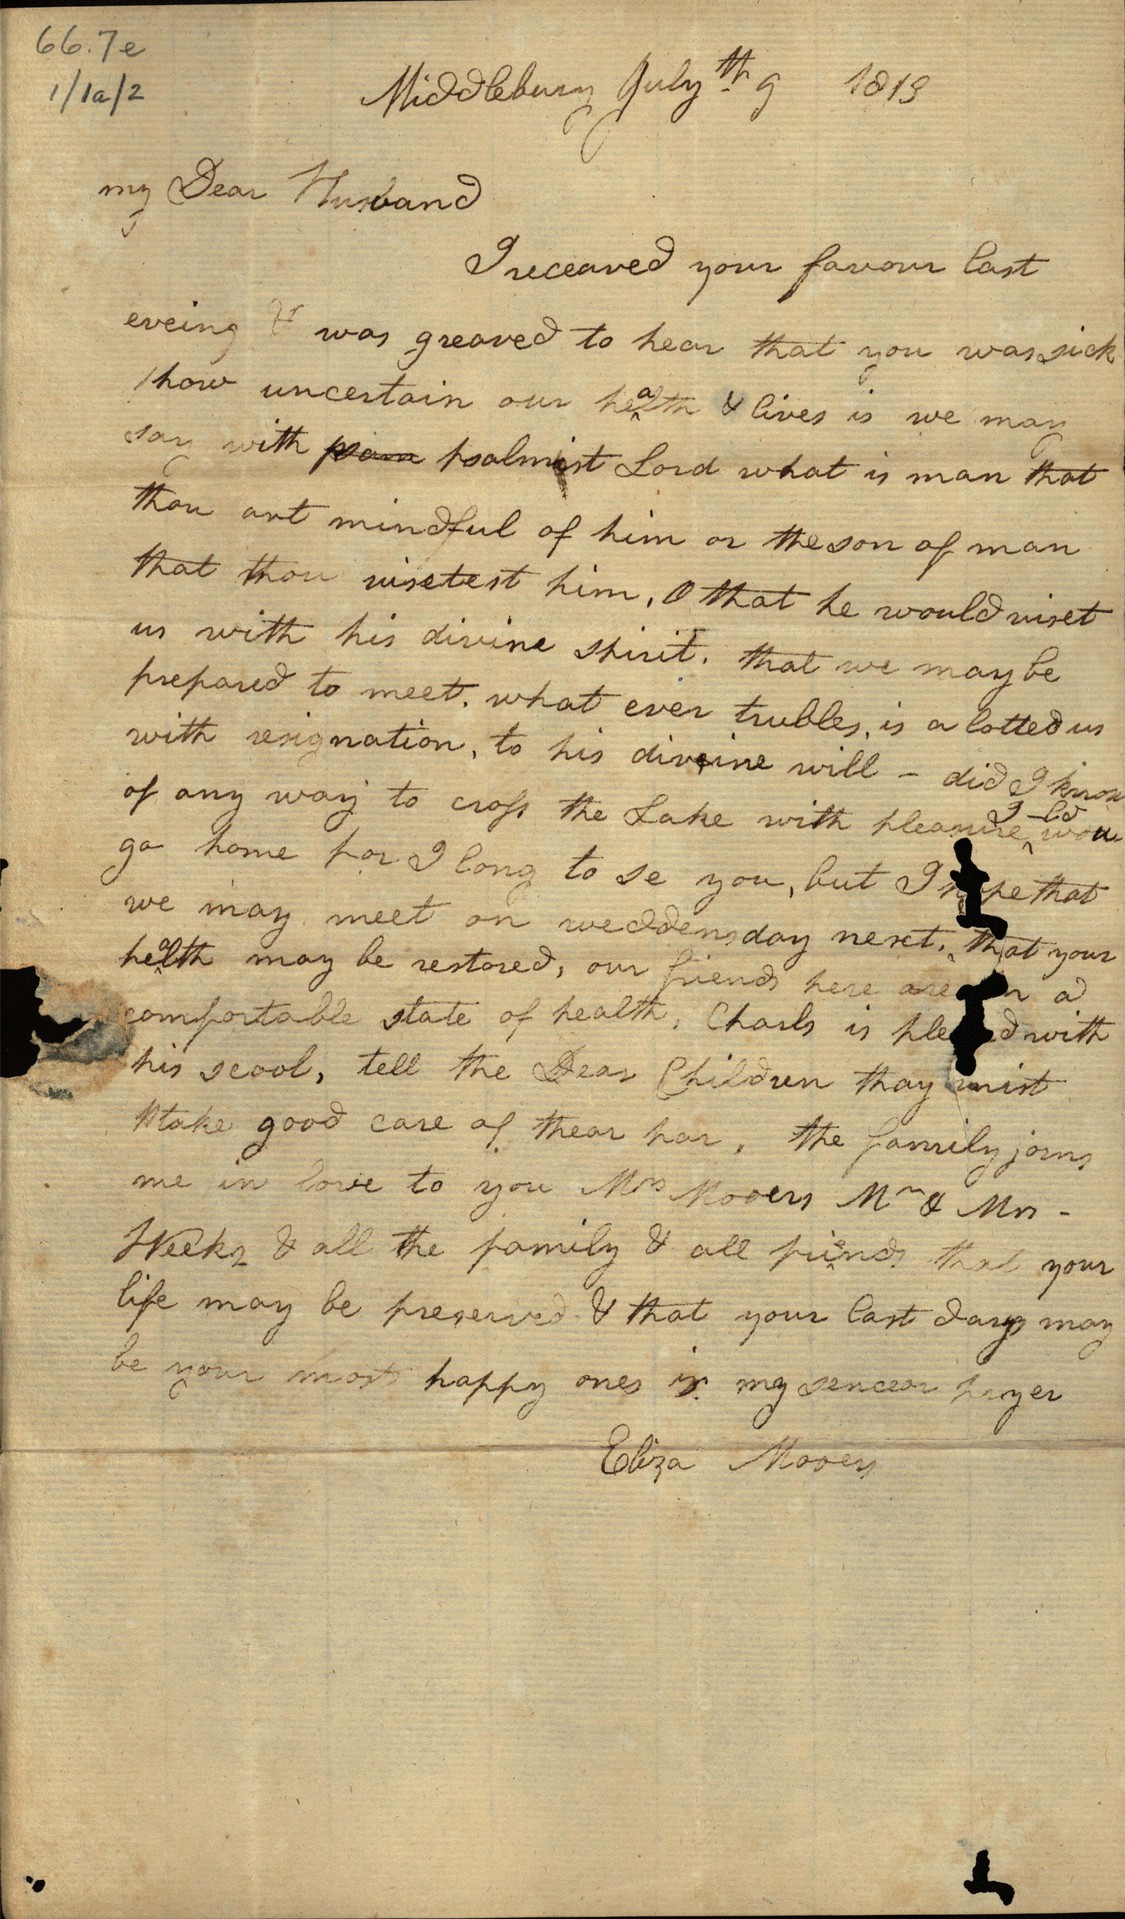 66.7e
1/1a/2
Middlebury July th 9 1813
my Dear Husband
I receaved your favour last
eveing & was greaved to hear that you was sick
how uncertain our health & lives is we may
say with psalmist Lord what is man that
thou art mindful of him or the son of man
that thou visetest him, O that he would viset
us with his divine spirit. that we may be
prepared to meet. what ever trubles, is a lotted us
with resignation, to his divine will - did I know
of any way to cross the Lake with pleasure I would
go home for I long to se you, but I hope that
we may meet on weddensday next, that your
health may be restored, our friends here are in a
comfortable state of health, Charls is pleased with
his scool, tell the Dear Children thay mist
take good care of thear par, the family joins
me in love to you Mrs Mooers Mr & Mrs -
Weeks & all the family & all friends that your
life may be preserved & that your last days may
be your most happy ones is my sencear pryer
Eliza Mooers